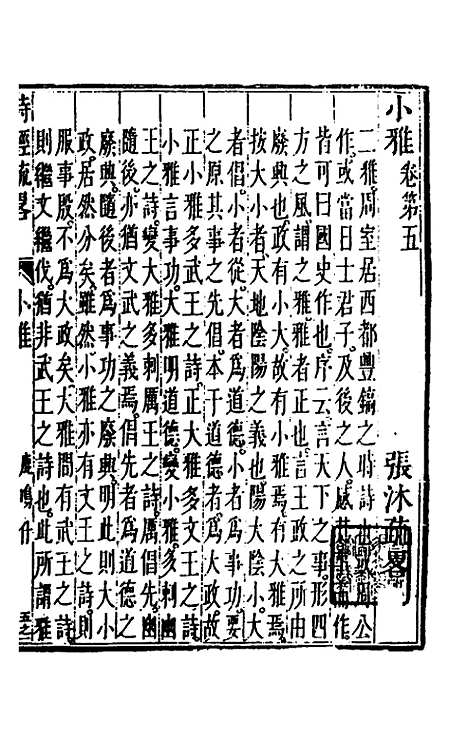 小雅 卷第五 張沐疏畧
二雅周室居西都豐鎬之時詩也或周公
作或當日士君子及後之人感其事而作
皆可曰國史作也序云言天下之事形四
方之風謂之雅雅者正也言王政之所由
廢興也政有小大故有小雅焉有大雅焉
按大小者天地陰陽之義也陽大陰小大
者倡小者從大者為道德小者為事功要
之原其事之先倡本于道德之大政故
正小雅多武王之詩正大雅多文王之詩
小雅言事功大雅明道德變小雅多刺幽
王之詩變大雅多刺厲王之詩厲倡先幽
隨後亦猶文武之義焉倡先者為道德之
廢興隨後者為事功之廢興明此則大小
政居然分矣雖然小雅亦有文王之詩則
服事殷不為大政矣大雅間有武王之詩
則繼文繼伐猶非武王之詩也此所謂雅
詩經疏畧 小雅 鹿鳴什 五之一